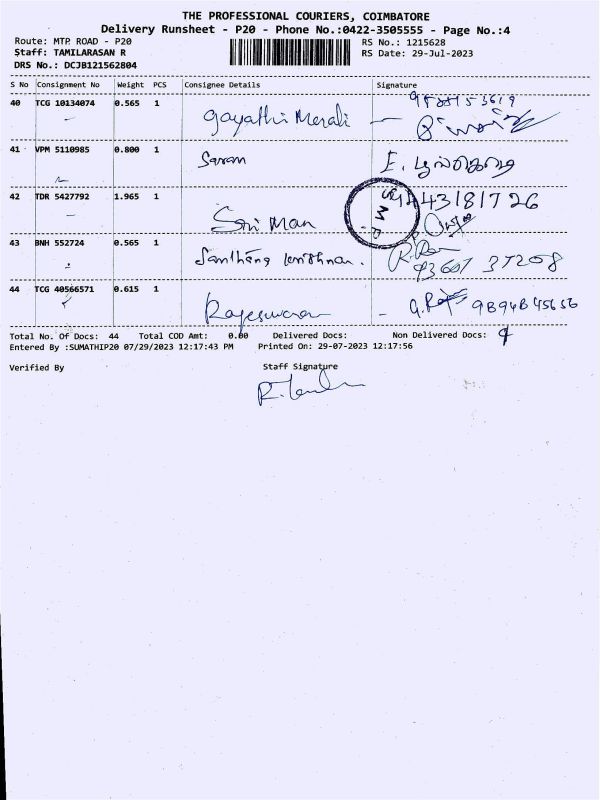 THE PROFESSIONAL COURIERS, COIMBATORE
Delivery Runsheet - P20 - Phone No.:0422-3505555 - Page No.:4
Route: MTP ROAD - P20 RS No.: 1215628
Staff: TAMILARASAN R RS Date: 29-Jul-2023
DRS No.: DCJB121562804
S No Consignment No Weight PCS Consignee Details Signature
40 TCG 10134074 0.565 1 Gayathi Merali
41 VPM 5110985 0.800 1 Saran
42 TDR 5427792 1.965 1 Sri Man 9443181726
SMR
43 BNH 552724 0.565 1 Santhana krishnan. 93607 37208
44 TCG 40566571 0.615 1 Rajeswaran
Total No. Of Docs: 44 Total COD Amt: 0.00 Delivered Docs: Non Delivered Docs:
Entered By :SUMATHIP20 07/29/2023 12:17:43 PM Printed On: 29-07-2023 12:17:56
Verified By Staff Signature